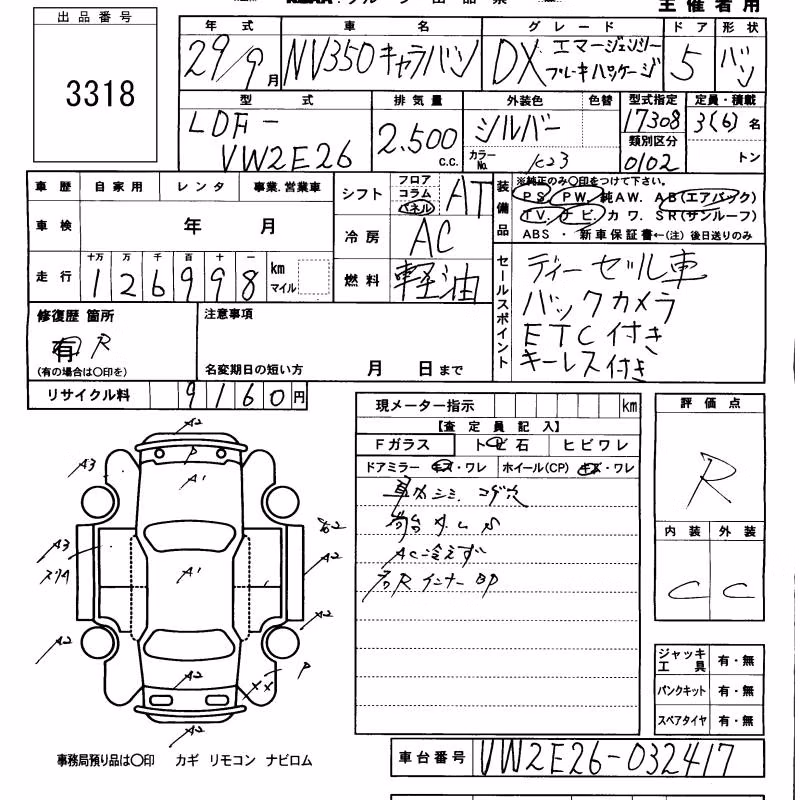 主催者用
出品番号
3318
年式 車名 グレード ドア 形状
29/9月 NV350キャラバン DX エマージェンシーブレーキパッケージ 5 バン
型式 排気量 外装色 色替 型式指定 定員・積載
LDF-VW2E26 2.500 c.c. シルバー カラーNo. K23 17308 3(6)名
類別区分
0102 トン
車歴 自家用 レンタ 事業.営業車
車検 年 月
走行 十万 万 千 百 十 一
126998 km マイル
シフト フロア コラム パネル AT
冷房 AC
燃料 軽油
装備品 ※純正のみ〇印をつけて下さい。
PS PW 純AW. AB(エアバック)
TV. ナビ. カワ. SR(サンルーフ)
ABS ・ 新車保証書←(注) 後日送りのみ
セールスポイント
ディーゼル車
バックカメラ
ETC付き
キーレス付き
修復歴 箇所
有 R
(有の場合は〇印を)
注意事項
名変期日の短い方 月 日まで
リサイクル料 9160円
現メーター指示 km
【査定員記入】
Fガラス トビ石 ヒビワレ
ドアミラー キズ・ワレ ホイール(CP) キズ・ワレ
車内シミ コゲ穴
AC冷えず
右Rインナー BP
評価点
R
内装 外装
C C
ジャッキ工具 有・無
パンクキット 有・無
スペアタイヤ 有・無
A2
P
A3
A1
A3
A2
A1
A2
A2
A2
A2
XX
P
A2
事務局預り品は〇印 カギ リモコン ナビロム
車台番号 VW2E26-032417